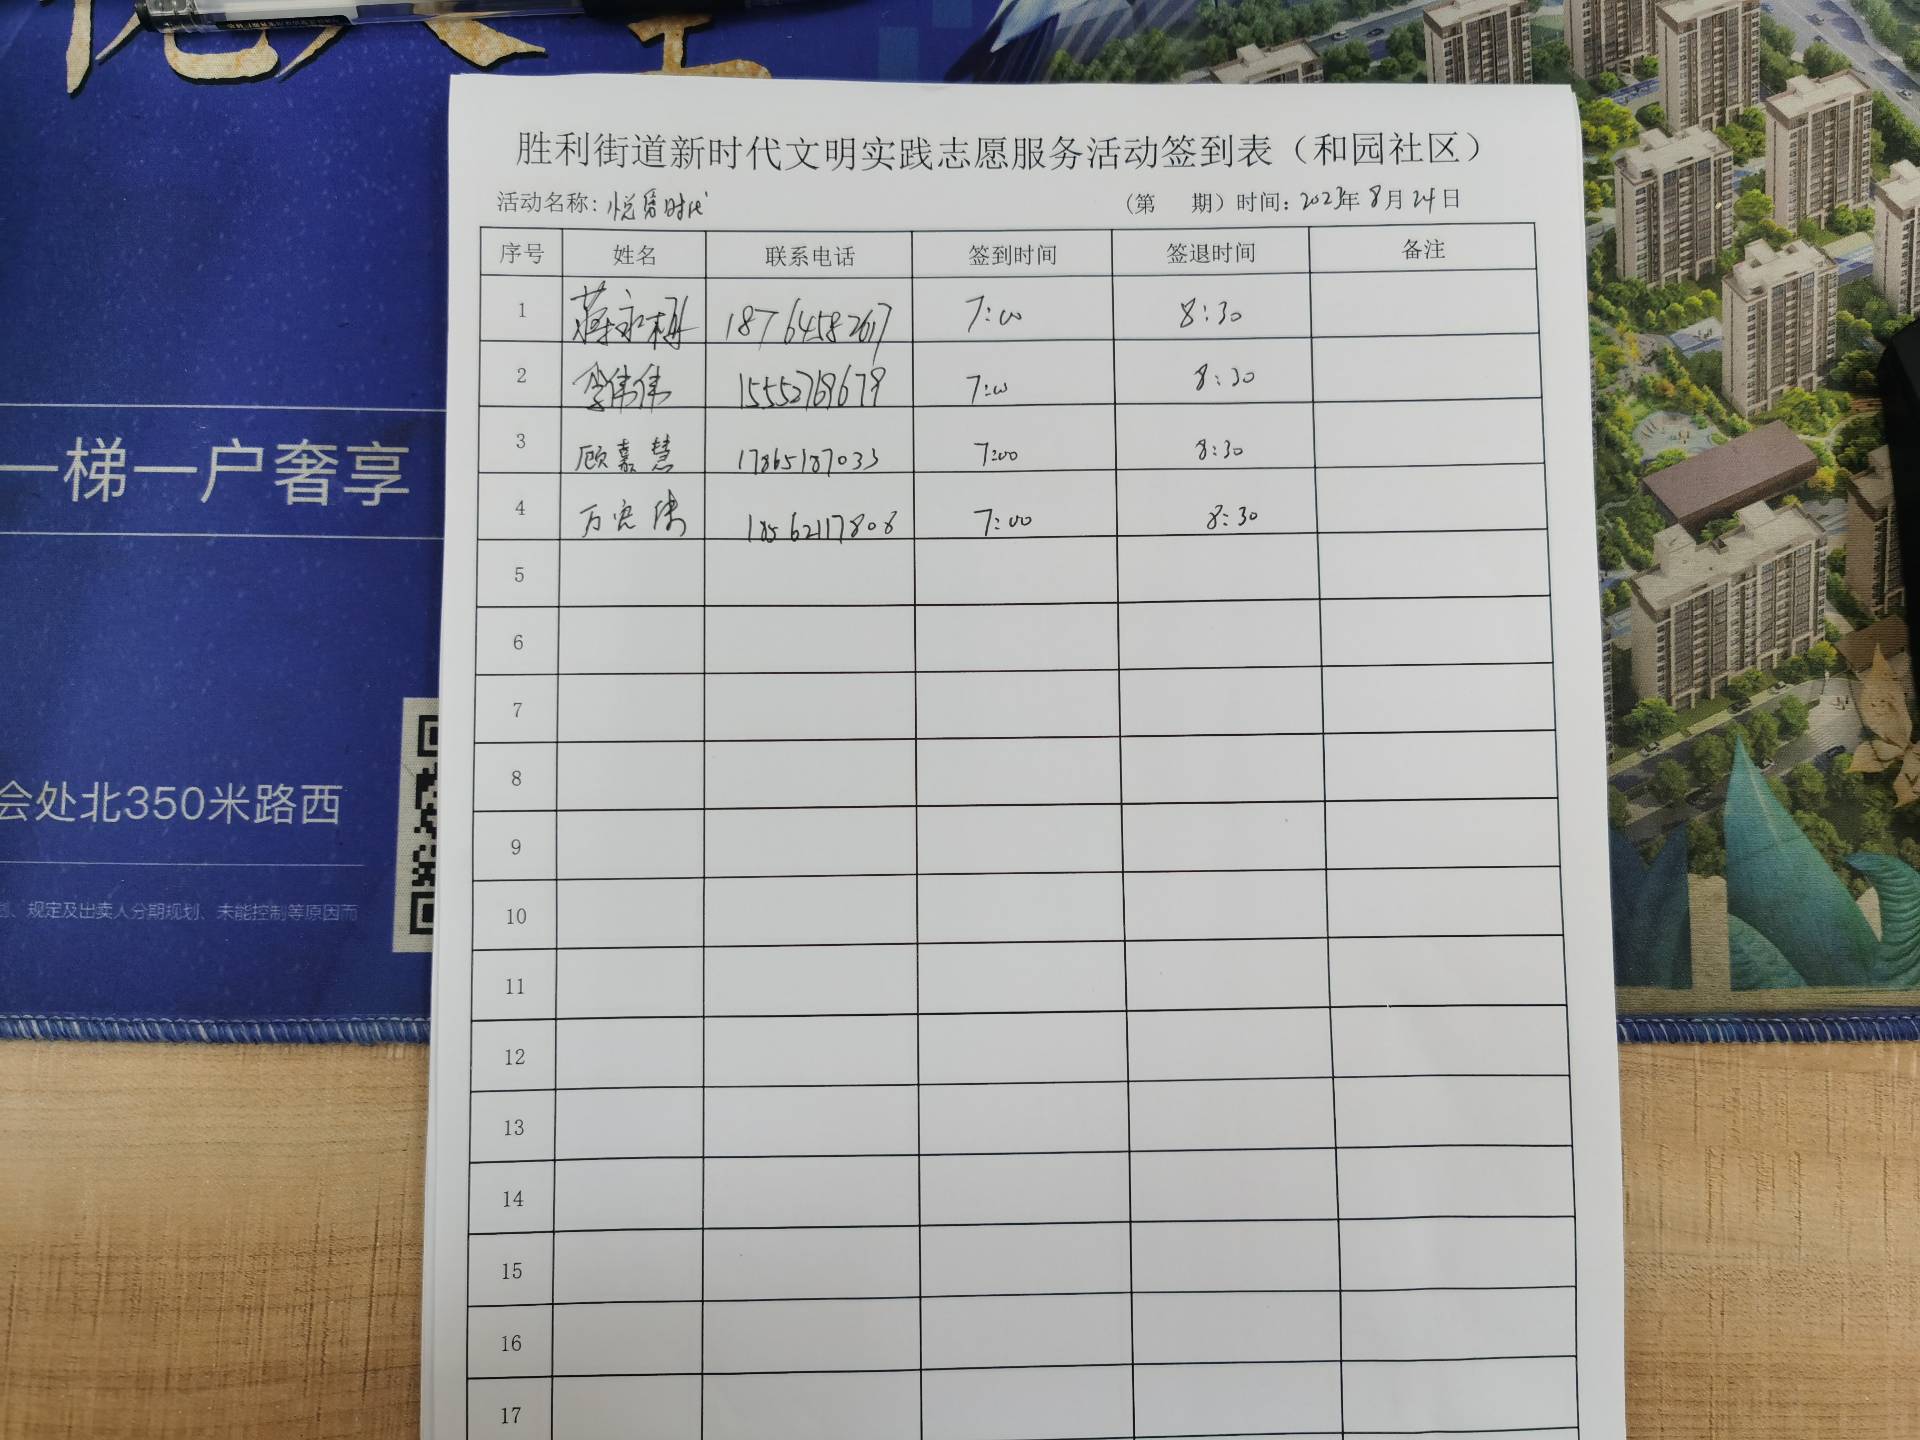 一梯一户奢享
会处北350米路西
、规定及出卖人分期规划、未能控制等原因而
胜利街道新时代文明实践志愿服务活动签到表（和园社区）
活动名称：悦 时代 （第 期）时间：2023年8月24日
序号 姓名 联系电话 签到时间 签退时间 备注
1 蒋永梅 18764582617 7:00 8:30
2 李伟伟 15552769679 7:00 8:30
3 顾嘉慧 17865187033 7:00 8:30
4 万 18562117808 7:00 8:30
5
6
7
8
9
10
11
12
13
14
15
16
17